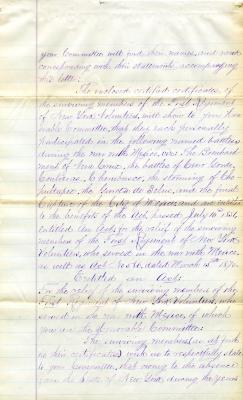 your Committee will find their names, and record
corresponding with their statements, accompanying
this letter.
The enclosed certified certificates of
the surviving members of the First Regiment
of New York Volunteers, will show to your Honor-
able Committee, that they each personally
participated in the following named battles
during the war with Mexico, viz: The Bombard-
ment of Vera Cruz, the battles of Cerro Gordo,
Contreras, Churubusco, the storming of Cha-
pultepec, the Garita de Belen, and the final
Capture of the City of Mexico, and are entitled
to the benefits of the Act, passed July 16th
Entitled An Act, for the relief of the surviving
members of the First Regiment of New York
Volunteers, who served in the war with Mexico
as well as Act No
Entitled an Act
For the relief of the surviving members of the
First Regiment of New York Volunteers, who
served in the war with Mexico, of which
you are the Honorable Committee.
The surviving members as set forth
in their certificates wish us to respectfully state
to your Committee, that owing to the absence
from the State of New York, during the years